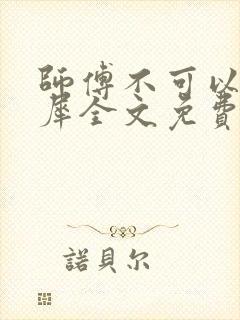 師傅不可以
犀全文免費
諾貝尔